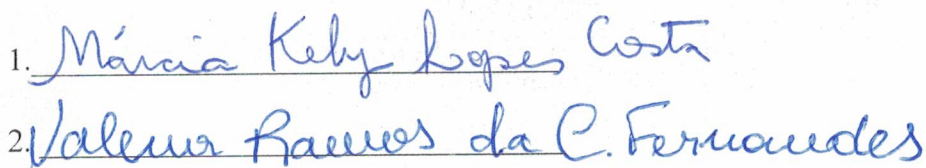 1. Márcia Kely Lopes Costa
2. Valeria Ramos da C. Fernandes